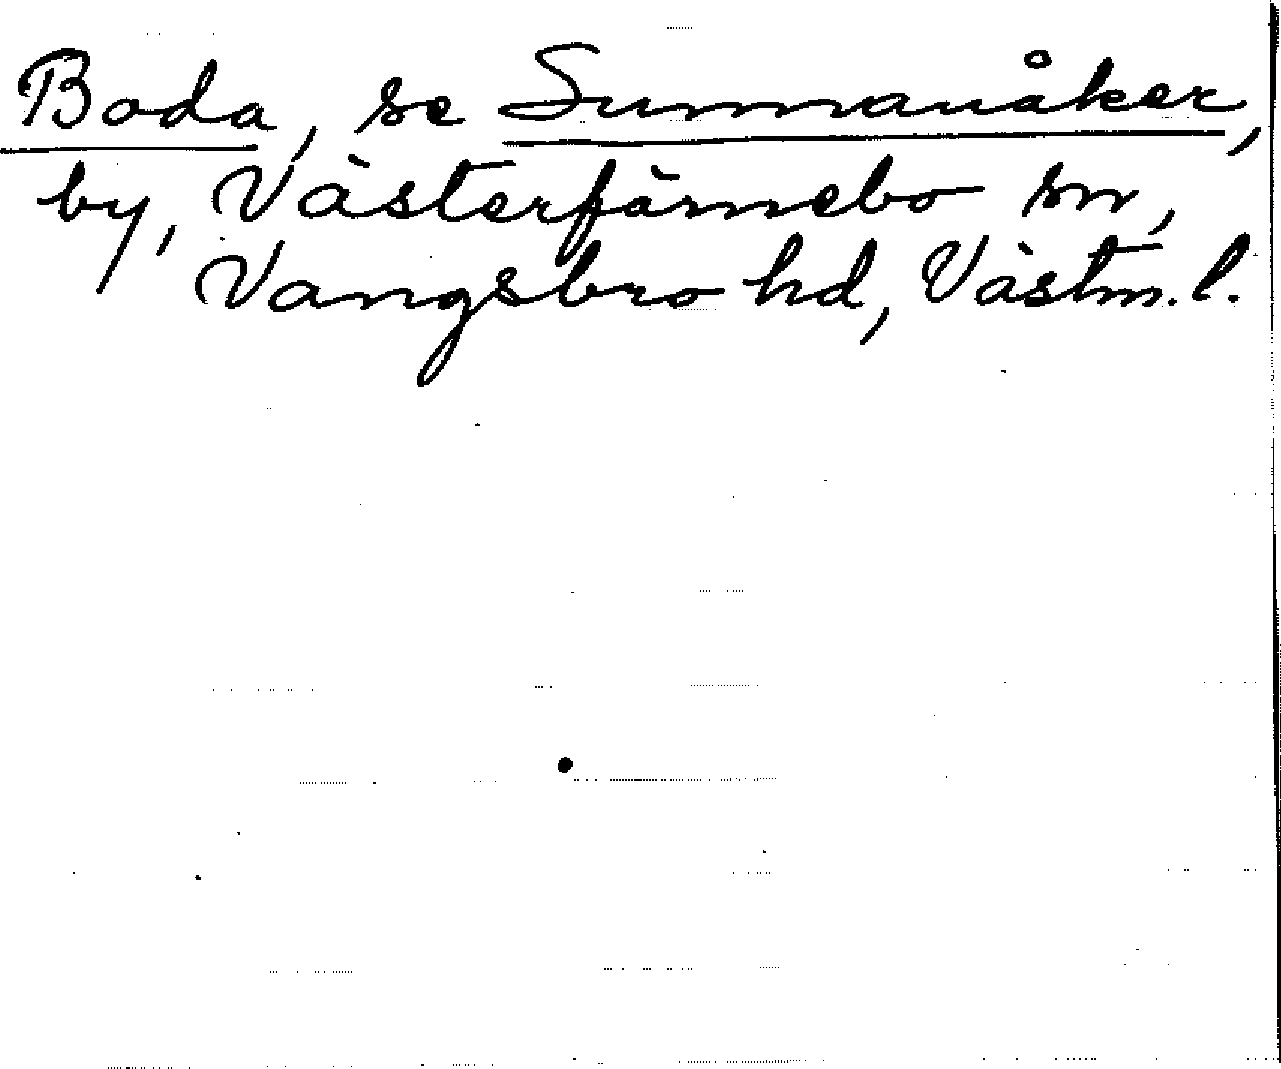 Boda, se Sumanåker,
by, Västerfärnebo sn,
Vangsbro hd, Västm. l.